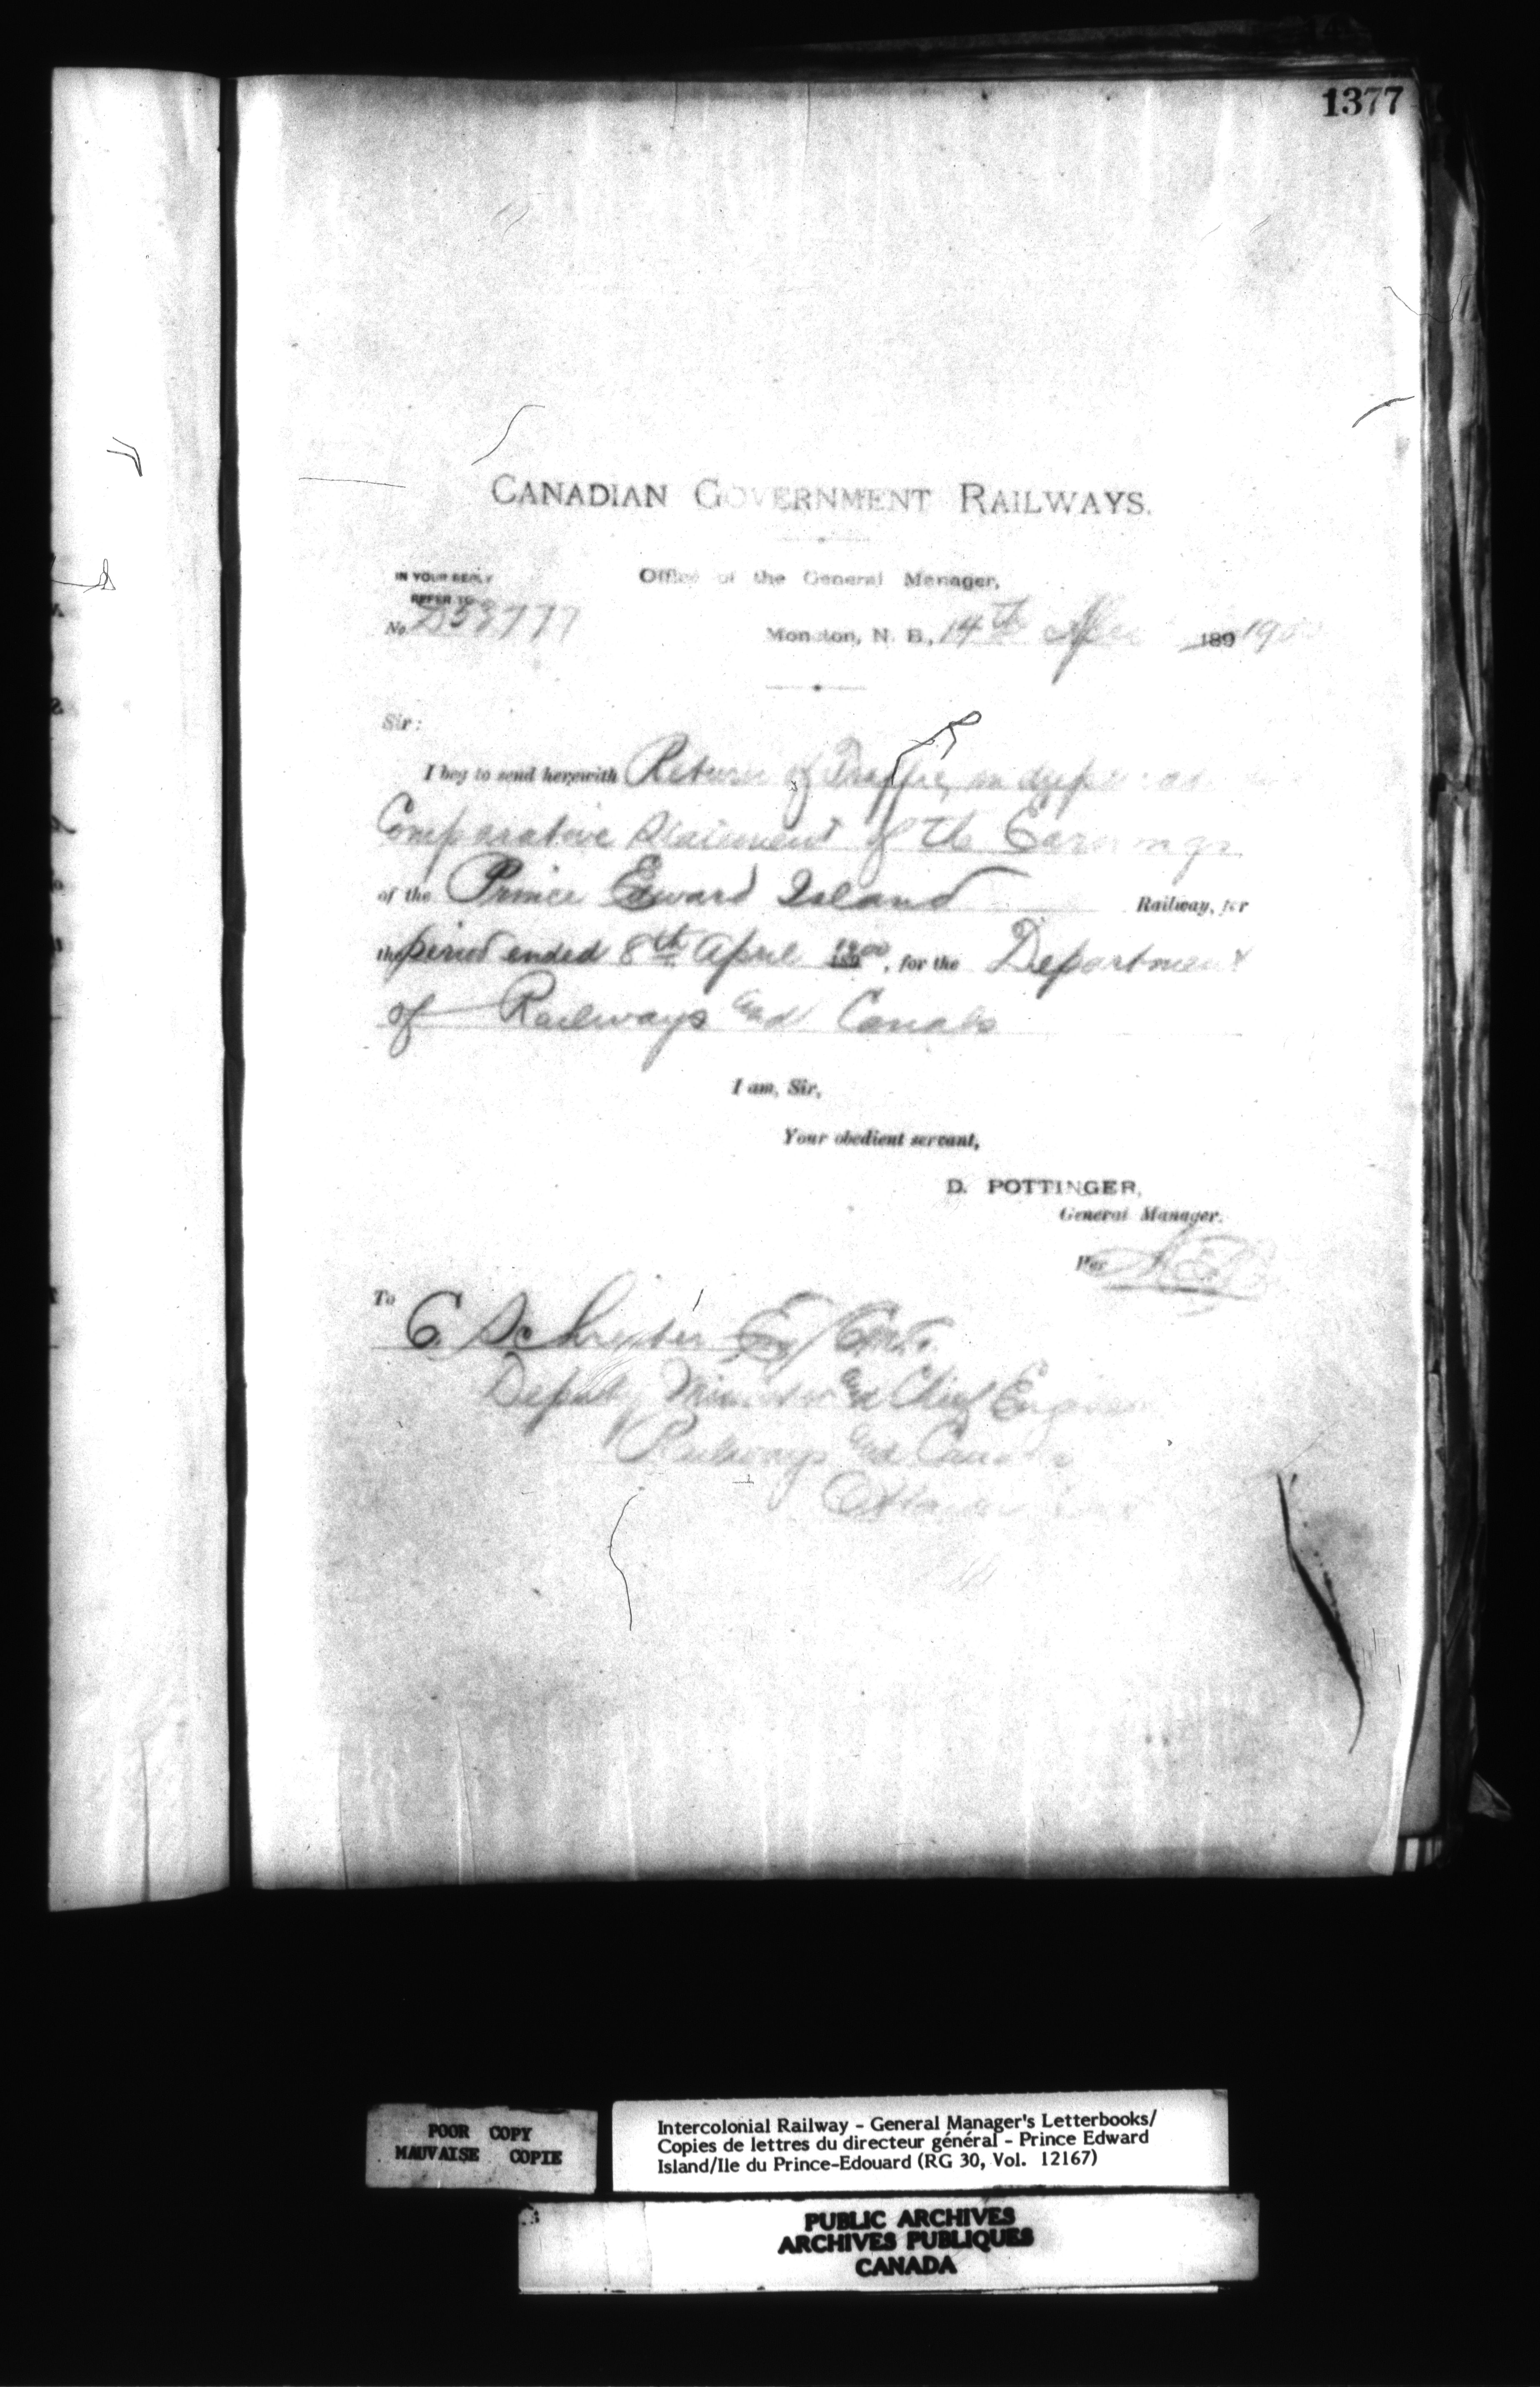 1377
CANADIAN GOVERNMENT RAILWAYS.
IN YOUR REPLY
REFER TO
Office of the General Manager,
No. D53777
Moncton, N. B., 14th 189 1900
Sir:
I beg to send herewith Return of Traffic, in
Comparative Statement of the Earnings
of the Prince Edward Island Railway, for
the period ended 8th April 1900, for the Department
of Railways and Canals
I am, Sir,
Your obedient servant,
D. POTTINGER,
General Manager.
Per
To
C Schreiber Esq
Deputy Minister and Chief Engineer
Railways and Canals
Ottawa
POOR COPY
MAUVAISE COPIE
Intercolonial Railway - General Manager's Letterbooks/
Copies de lettres du directeur général - Prince Edward
Island/Ile du Prince-Edouard (RG 30, Vol. 12167)
PUBLIC ARCHIVES
ARCHIVES PUBLIQUES
CANADA